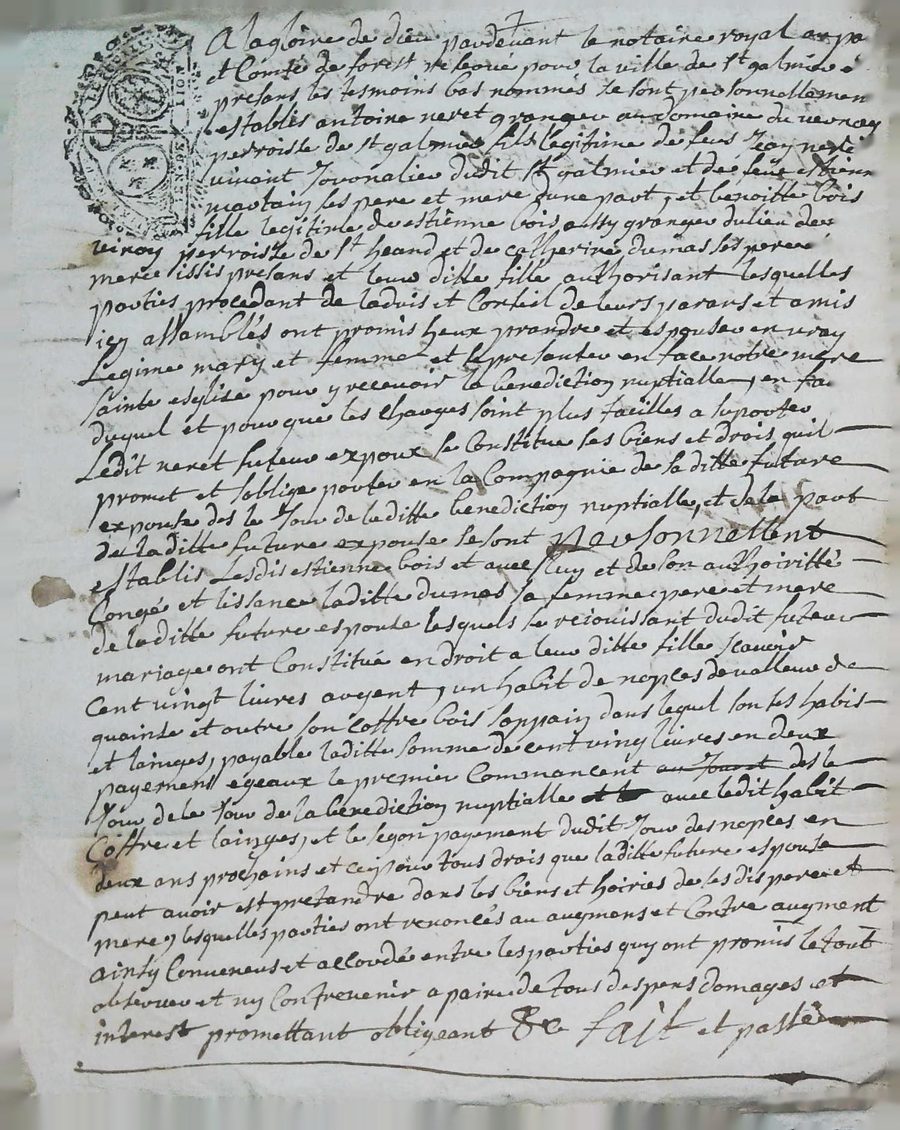 A la gloire de dieu pardevant le notaire royal au pa
et Comté de forest reserve pour la ville de st galmier é
presans les tesmoins bas nommés se sont personnellemen
establis antoine neret granger au domaine du vernay
perroisse de st galmier fils legitime de feus Jean neret
vivant Jornalier dudit st galmier et de feue estienn
martain ses pere et mere d'une part, et benoitte bois
fille legitime de estienne bois aussy granger du lieu de
viroy perroisse de st heand et de catherine dumas ses pere e
mere issis presans et leur ditte fille authorisant lesquelles
parties procedant de laduis et Conseil de leurs parans et amis
icy assamblés ont promis heux prandre et espouser en vray
Legime mary et femme et se presanter en face notre mere
sainte esglise pour y recevoir la benediction nuptialle, en fa
duquel et pour que les charges soint plus facilles a suporter
Ledit neret futeur expoux se Constitue ses biens et drois quil
promet et soblige porter en la Compagnie de sa ditte future
expouse des le Jour de laditte benediction nuptialle, et de la part
de laditte future expouse se sont personnellent
establis Lesdis estienne bois et avec luy et de son authoiritté
Congé et lissance laditte dumas sa femme pere et mere
de laditte future espouse lesquels se reiouissant dudit futeur
mariage ont Constitué en droit a leur ditte fille scavoir
Cent vingt livres argent, un habit de nopces de valleur de
quainse et outre son Coffre bois sappain dans lequel son ses habis
et lainges, payable laditte somme de cent ving livres en deux
payement egeaux le premier Commancent au Jourst des le
Jour de le Jour de la benediction nuptialle et le avec ledit habit
Coffre et lainges, et le segon payement dudit Jour des nopces en
deux ans prochains et ce pour tous drois que laditte future espouse
peut avoir est pretandre dans les biens et hoiries de ses dis pere et
mere, lesquelles parties ont renoncés au augmens et Contre augment
ainsy Conveneus et accordée entre les parties quy ont promis le tout
observer et ny Contrevenir a paine de tous despens domages et
interest promettant obligeant &c fait et passé